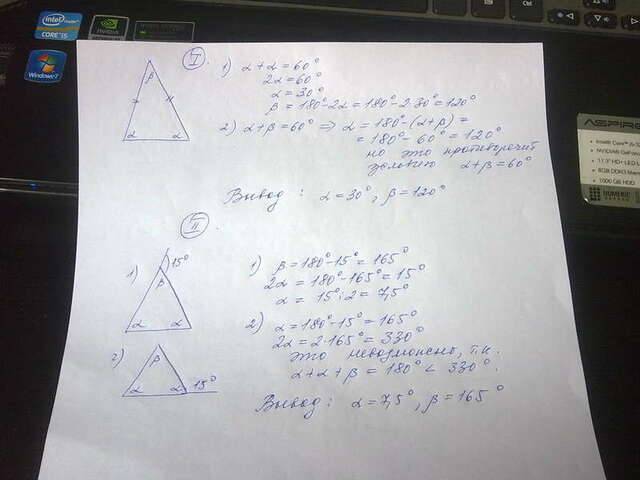 intel
CORE i5
NVIDIA
Windows 7
ASPIRE
I.
β
α α
1) α + α = 60°
2α = 60°
α = 30°
β = 180° - 2α = 180° - 2·30° = 120°
2) α + β = 60° ⇒ α = 180° - (α + β) =
= 180° - 60° = 120°
но это противоречит
условию α + β = 60°
Вывод: α = 30°, β = 120°
II
1)
15°
β
α α
1) β = 180° - 15° = 165°
2α = 180° - 165° = 15°
α = 15° : 2 = 7,5°
2)
β
α α
15°
2) α = 180° - 15° = 165°
2α = 2·165° = 330°
Это невозможно, т.к.
α + α + β = 180° < 330°.
Вывод: α = 7,5°, β = 165°